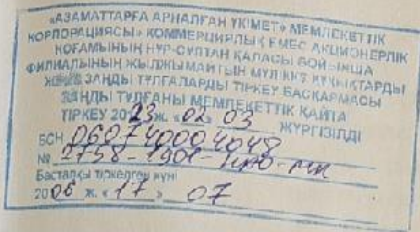 «АЗАМАТТАРҒА АРНАЛҒАН ҮКІМЕТ» МЕМЛЕКЕТТІК
КОРПОРАЦИЯСЫ» КОММЕРЦИЯЛЫҚ ЕМЕС АКЦИОНЕРЛІК
ҚОҒАМЫНЫҢ НҰР-СҰЛТАН ҚАЛАСЫ БОЙЫНША
ФИЛИАЛЫНЫҢ ЖЫЛЖЫМАЙТЫН МҮЛІККЕ ҚҰҚЫҚТАРДЫ
ЖӘНЕ ЗАҢДЫ ТҰЛҒАЛАРДЫ ТІРКЕУ БАСҚАРМАСЫ
ЗАҢДЫ ТҰЛҒАНЫ МЕМЛЕКЕТТІК ҚАЙТА
ТІРКЕУ 2023 ж. «02» 03
ЖҮРГІЗІЛДІ
БСН 060740004048
№ 2758-1901-
Бастапқы тіркелген күні
2006 ж. «17» 07